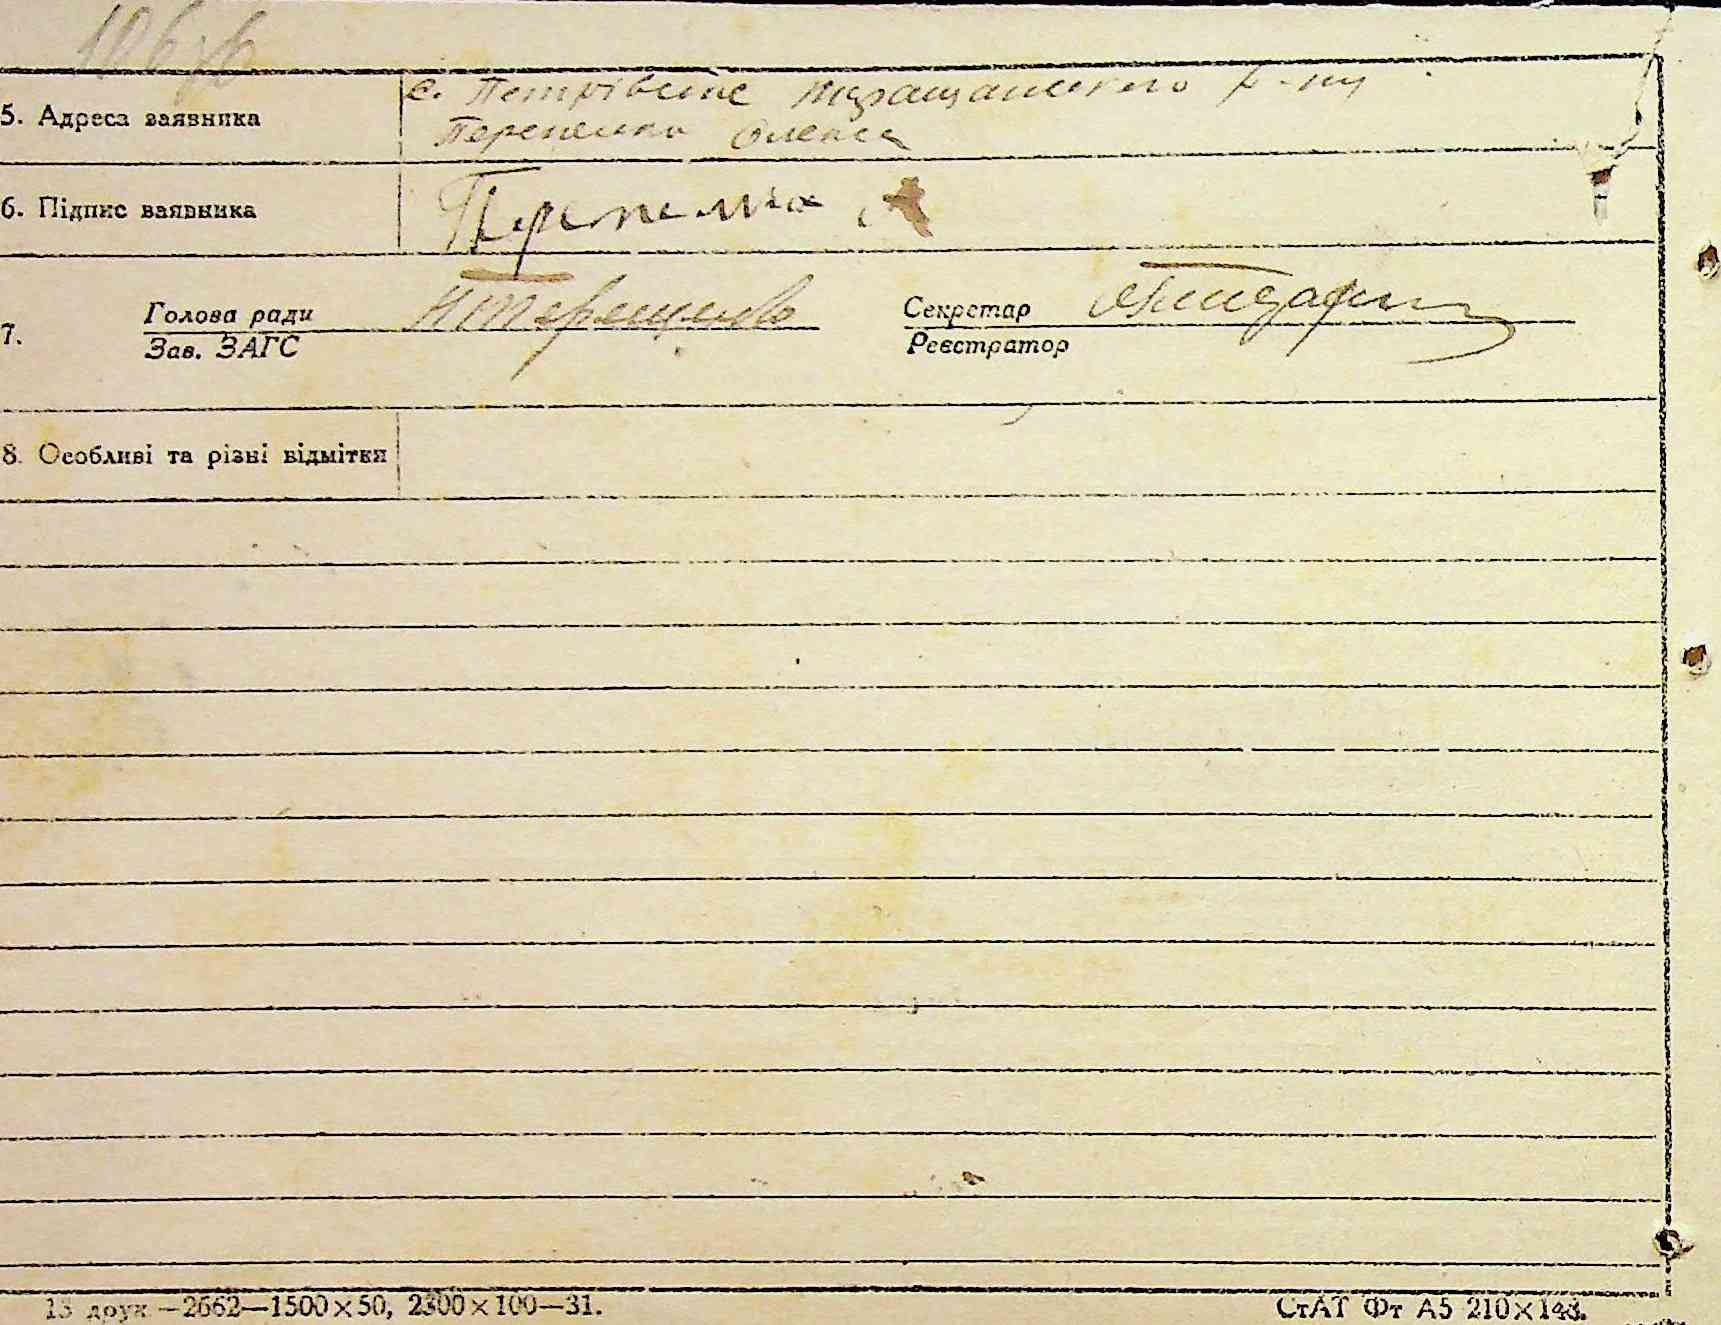 5. Адреса заявника
с. Петрівське р-ну
Перепелка Олекса
6. Підпис заявника
Перепелка
7.
Голова ради Терещенко Секретар
Зав. ЗАГС Реєстратор
8. Особливі та різні відмітки
13 друк.—2662—1500×50, 2300×100—31. СтАТ Фт А5 210×148.